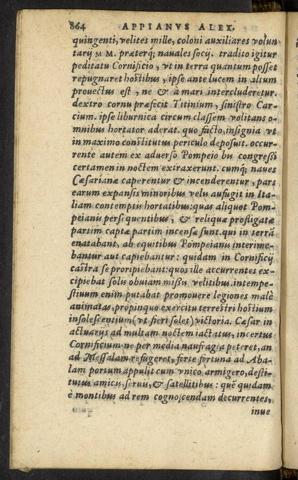 864 APPIANVS ALEX.
quingenti, velites mille, coloni auxiliares volun
tarij M M. præterq; nauales socij. tradito igitur
peditatu Cornificio, vt in terra quantum posset
repugnaret hostibus, ipse ante lucem in altum
prouectus est, ne & a mari intercluderetur.
dextro cornu præfecit Titinium, sinistro Car
cium. ipse liburnica circum classem volitans o-
mnibus hortator aderat. quo facto, insignia vt
in maximo constitutus periculo deposuit. occur-
rente autem ex aduerso Pompeio bis congressi
certamen in noctem extraxerunt. cumq; naues
Cæsarianæ caperentur & incenderentur, pars
earum expansis minoribus velis aufugit in Ita-
liam contemptis hortatibus: quas aliquot Pom-
peiani persequentibus, & reliquæ profligatæ
partim captæ partim incensæ sunt. qui in terrã
enatabant, ab equitibus Pompeianis interime-
bantur aut capiebantur : quidam in Cornificij
castra se proripiebant: quos ille accurrentes ex-
cipiebat solis obuiam missis velitibus. intempe-
stiuum enim putabat promouere legiones malè
animatas, propinquo exercitu terrestri hostium
insolescentium (vt fieri solet) victoria. Cæsar in
actuarijs ad multam noctem iactatus, incertus
Cornificium ne per media naufragia peteret, an
ad Messalam refugeret, forte fortuna ad Aba-
lam portum appulit cum vnico armigero, desti-
tutus amicis, seruis, & satellitibus : quẽ quidam
è montibus ad rem cognoscendam decurrentes,
inue